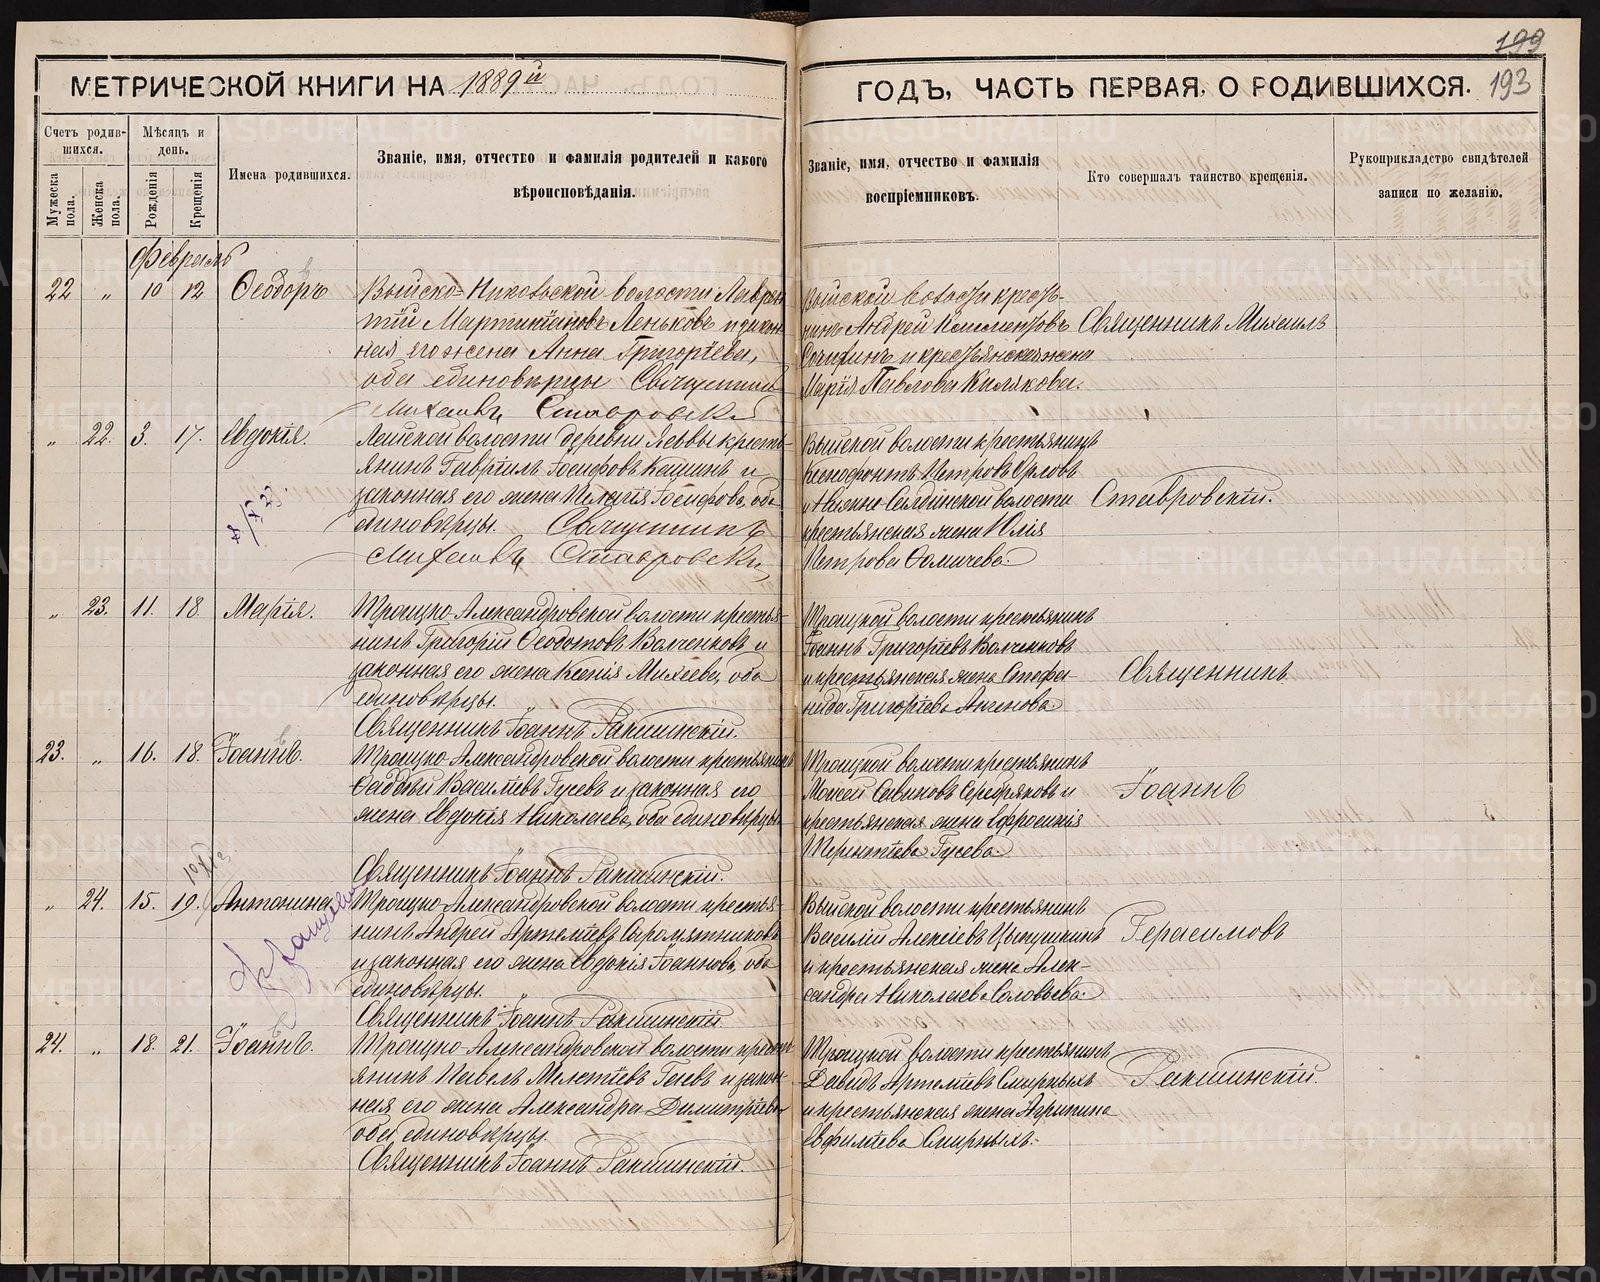 199
193
МЕТРИЧЕСКОЙ КНИГИ НА 1889й
ГОДЪ, ЧАСТЬ ПЕРВАЯ, О РОДИВШИХСЯ.
Счетъ родив-
шихся.
Мужеска пола.
Женска пола.
Мѣсяцъ и
день.
Рожденія
Крещенія
Имена родившихся.
Званіе, имя, отчество и фамилія родителей и какого
вѣроисповѣданія.
Званіе, имя, отчество и фамилія
воспріемниковъ.
Кто совершалъ таинство крещенія.
Рукоприкладство свидѣтелей
записи по желанію.
Февраль
22 " 10 12 Ѳеодоръ
Выйско-Никольской волости Лаврен
тій Мартиніановъ Леньковъ и закон
ная его жена Анна Григоріева,
оба единовѣрцы Священникъ
Михаилъ Ставровскій
Выйской волости кресть-
нинъ Андрей Климентовъ
и крестьянская жена
Марія Павлова Килякова.
Священникъ Михаилъ
" 22. 3. 17. Евдокія.
Лайской волости деревни кресть-
янинъ Гавріилъ Іосифовъ Кашинъ и
законная его жена Пелагія Іосифова, оба
единовѣрцы. Священникъ
Михаилъ Ставровскій
Выйской волости крестьянинъ
Ксенофонтъ Петровъ Орловъ
и Нижне-Салдинской волости
крестьянская жена Юлія
Петрова
Ставровскій.
" 23. 11. 18 Марія.
Троицко-Александровской волости крестья-
нинъ Григорій Ѳеодотовъ Волченковъ и
законная его жена Ксенія Михеева, оба
единовѣрцы.
Священникъ Іоаннъ Ракшинскій.
Троицкой волости крестьянинъ
Іоаннъ Григоріевъ Волченковъ
и крестьянская жена Стефа
нида Григоріева
Священникъ
23. " 16. 18. Іоаннъ.
Троицко-Александровской волости крестьянинъ
Ѳаддей Василіевъ Гусевъ и законная его
жена Евдокія Николаева, оба единовѣрцы
Священникъ Іоаннъ Ракшинскій.
Троицкой волости крестьянинъ
Моисей Савиновъ Серебряковъ и
крестьянская жена Ефросинія
Терентіева Гусева.
Іоаннъ
" 24. 15. 19. Антонина
Троицко-Александровской волости крестья-
нинъ Андрей Артеміевъ Сыромятниковъ
и законная его жена Евдокія Іоаннова, оба
единовѣрцы.
Священникъ Іоаннъ Ракшинскій
Выйской волости крестьянинъ
Василій Алексіевъ Цыпушкинъ
и крестьянская жена Алек-
сандра Николаева Соловьева.
Герасимовъ
24. " 18. 21. Іоаннъ.
Троицко-Александровской волости кресть
янинъ Павелъ Мелетіевъ Гаевъ и закон
ная его жена Александра Димитріева
оба единовѣрцы.
Священникъ Іоаннъ Ракшинскій.
Троицкой волости крестьянинъ
Давидъ Артеміевъ Смирныхъ
и крестьянская жена Агрипина
Евфиміева Смирныхъ.
Ракшинскій.
METRIKI.GASO-URAL.RU